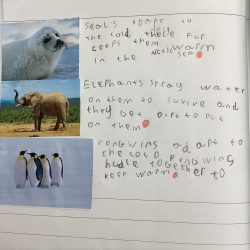 Seals adapt to
the cold their fur
ceeps them warm
in the arctic sea
Elephants spray water
on them to survive and
they get dirt to put
on them
Pengwins adapt to
the cold Pengwing
hudle together to
keep warm